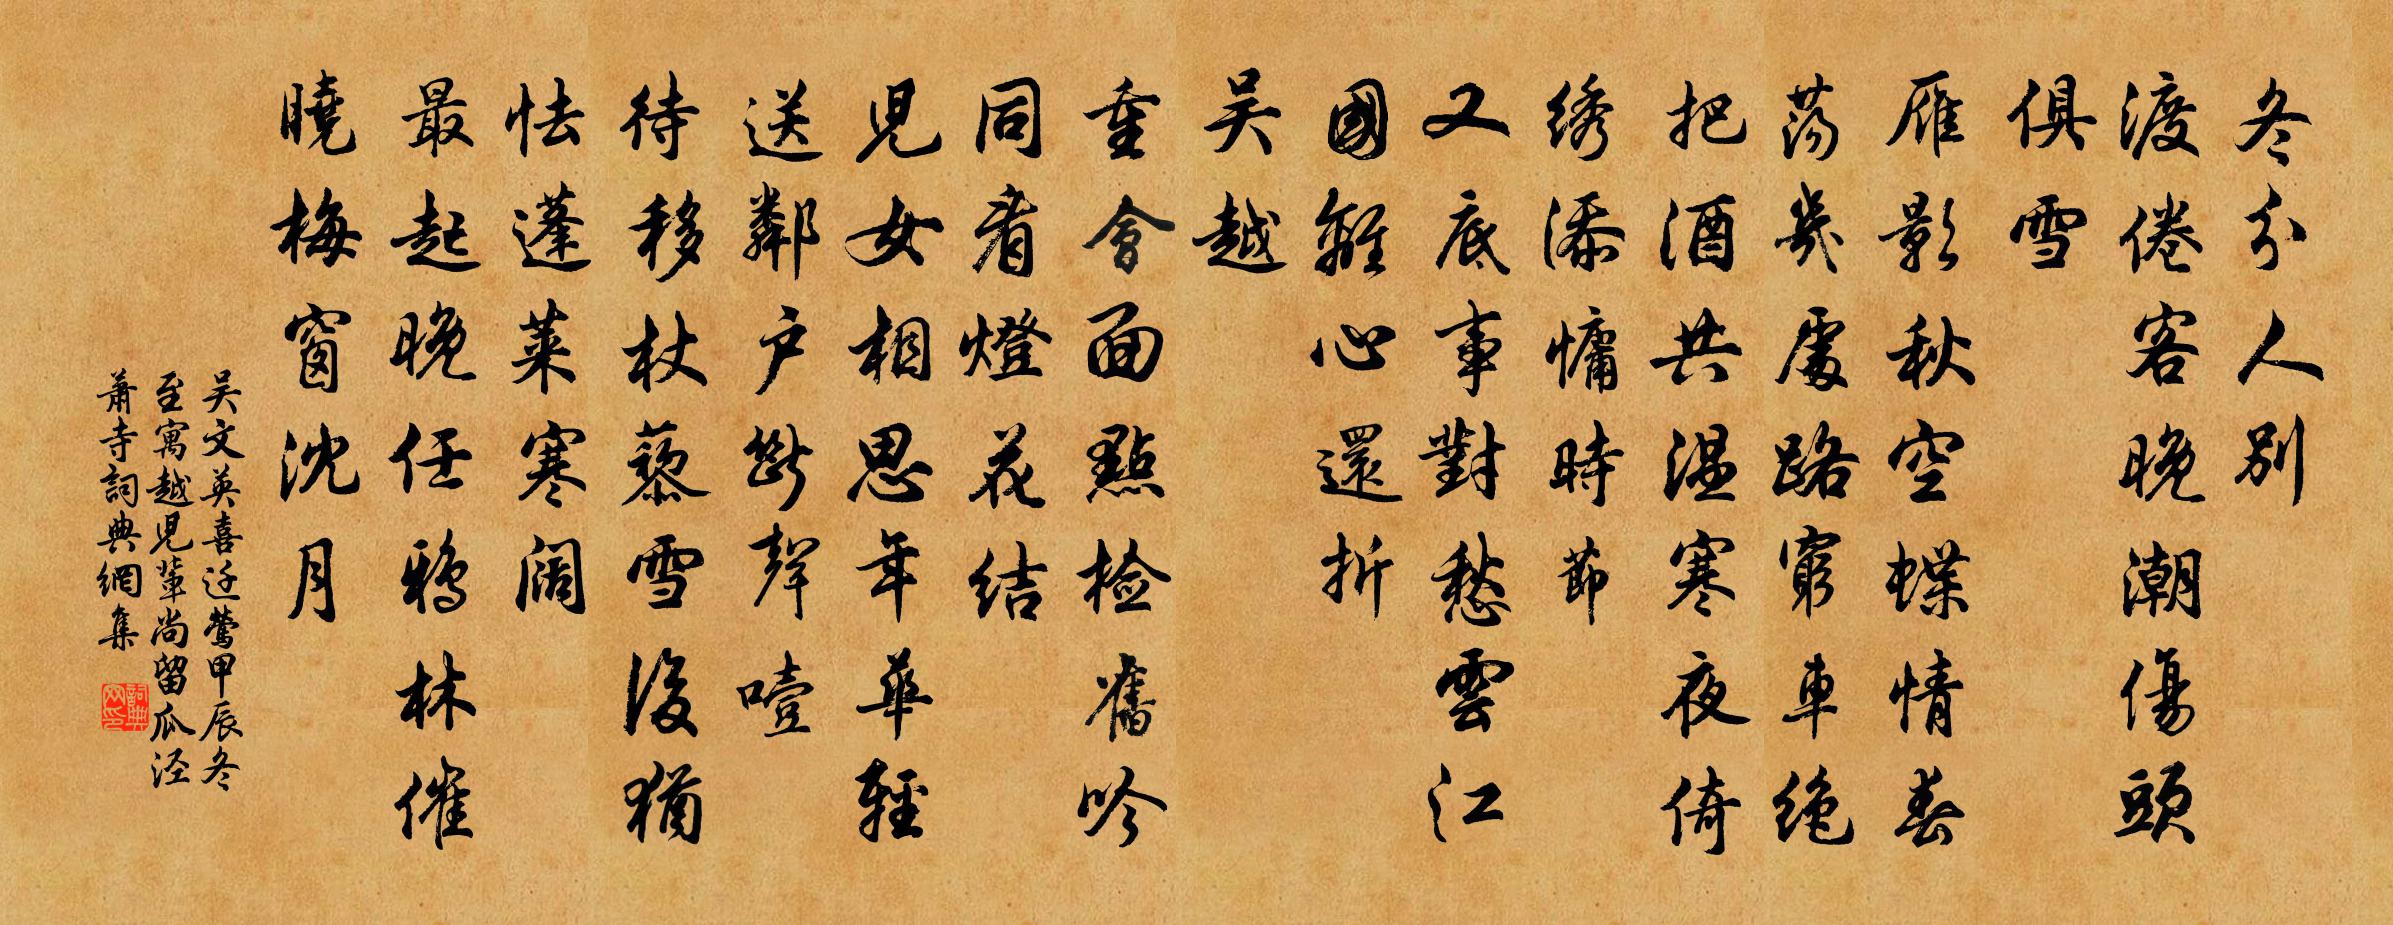 冬分人别
渡倦客晚潮傷頭
俱雪
雁影秋空蝶情春
蕩幾處路窮車绝
把酒共温寒夜倚
绣添慵時節
又底事對愁雲江
國離心還折
吴越
重會面點檢舊吟
同看燈花结
兒女相思年華輕
送鄰户斷聲噎
待移杖藜雪後猶
怯蓬萊寒闊
最起晚任鴉林催
曉梅窗沈月
吴文英喜迁鶯甲辰冬
至寓越兒輩尚留瓜泾
蕭寺詞典網集
詞典网印